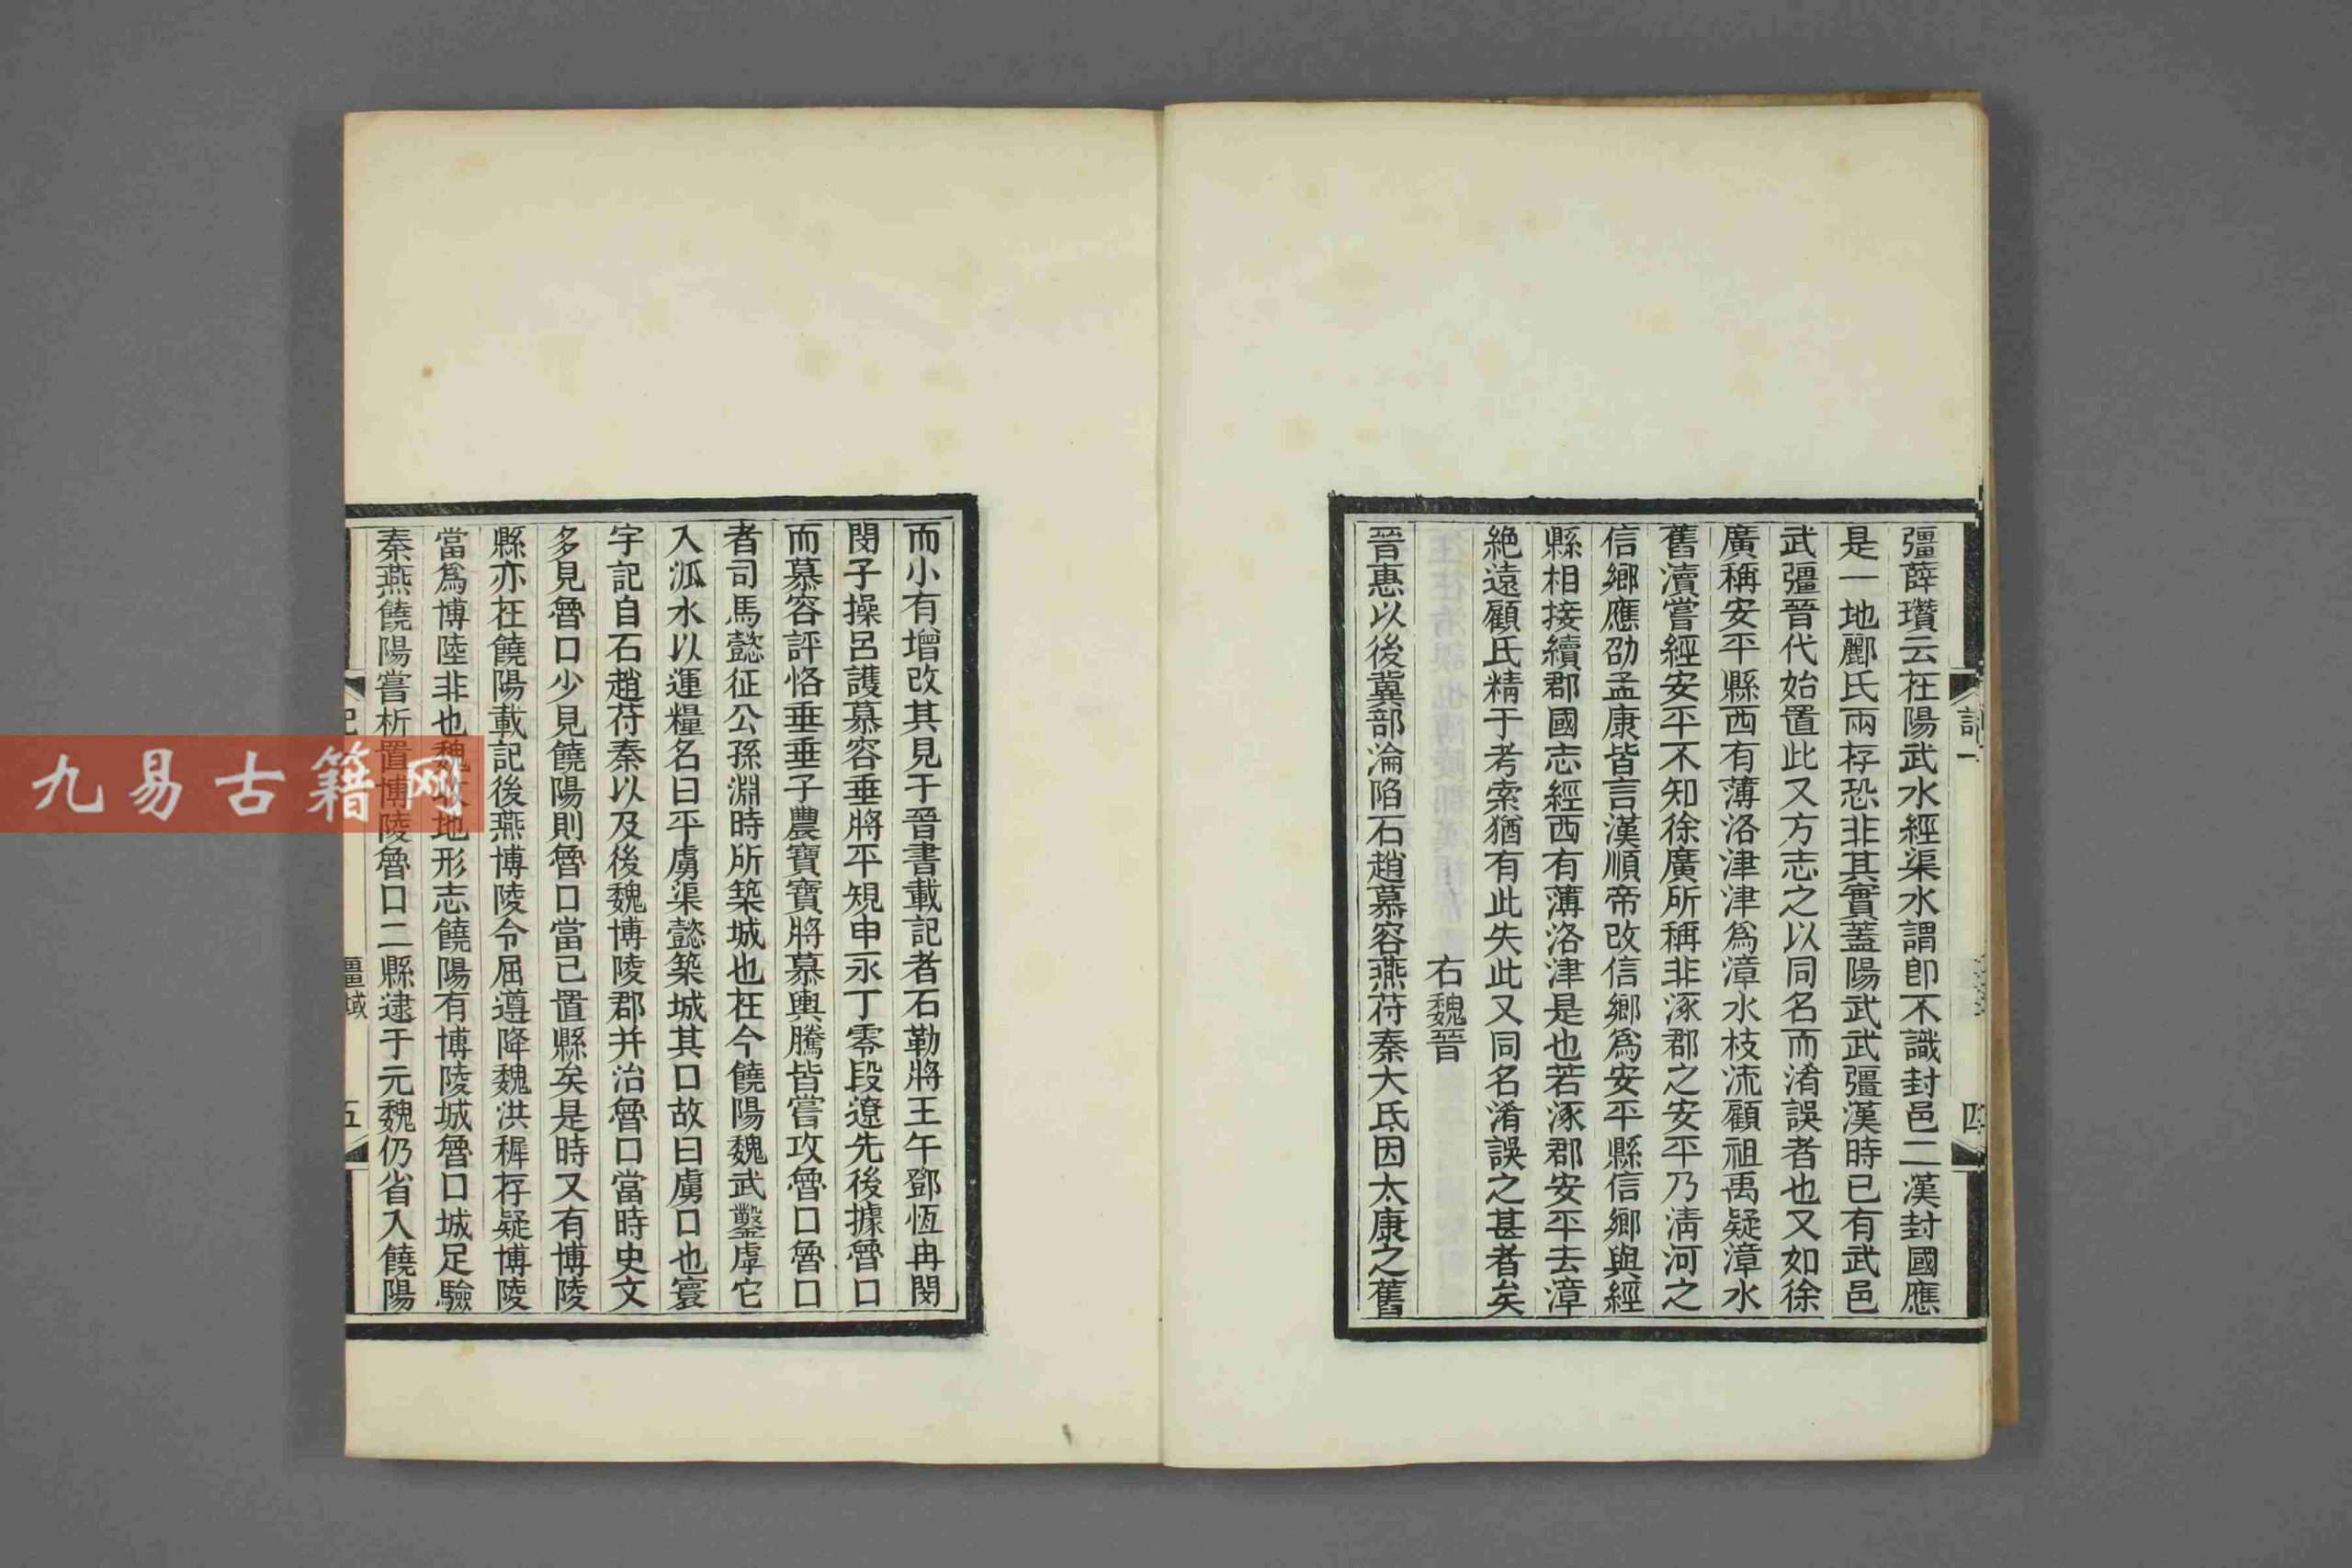 彊薛瓚云在陽武水經渠水謂卽不識封邑二漢封國應
是一地酈氏兩存恐非其實蓋陽武武彊漢時已有武邑
武彊晉代始置此又方志之以同名而淆誤者也又如徐
廣稱安平縣西有薄洛津津爲漳水枝流顧祖禹疑漳水
舊瀆嘗經安平不知徐廣所稱非涿郡之安平乃淸河之
信鄉應劭孟康皆言漢順帝改信鄉爲安平縣信鄉與經
縣相接續郡國志經西有薄洛津是也若涿郡安平去漳
絶遠顧氏精于考索猶有此失此又同名淆誤之甚者矣
右魏晉
晉惠以後冀部淪陷石趙慕容燕苻秦大氐因太康之舊
記一
四
而小有增改其見于晉書載記者石勒將王午鄧恆冉閔
閔子操呂護慕容垂將平規申永丁零段遼先後據魯口
而慕容評恪垂垂子農寶寶將慕輿騰皆嘗攻魯口魯口
者司馬懿征公孫淵時所築城也在今饒陽魏武鑿虖它
入泒水以運糧名曰平虜渠懿築城其口故曰虜口也寰
宇記自石趙苻秦以及後魏博陵郡并治魯口當時史文
多見魯口少見饒陽則魯口當已置縣矣是時又有博陵
縣亦在饒陽載記後燕博陵令屈遵降魏洪穉存疑博陵
當爲博陸非也魏收地形志饒陽有博陵城魯口城足驗
秦燕饒陽嘗析置博陵魯口二縣逮于元魏仍省入饒陽
疆域
五
九易古籍网